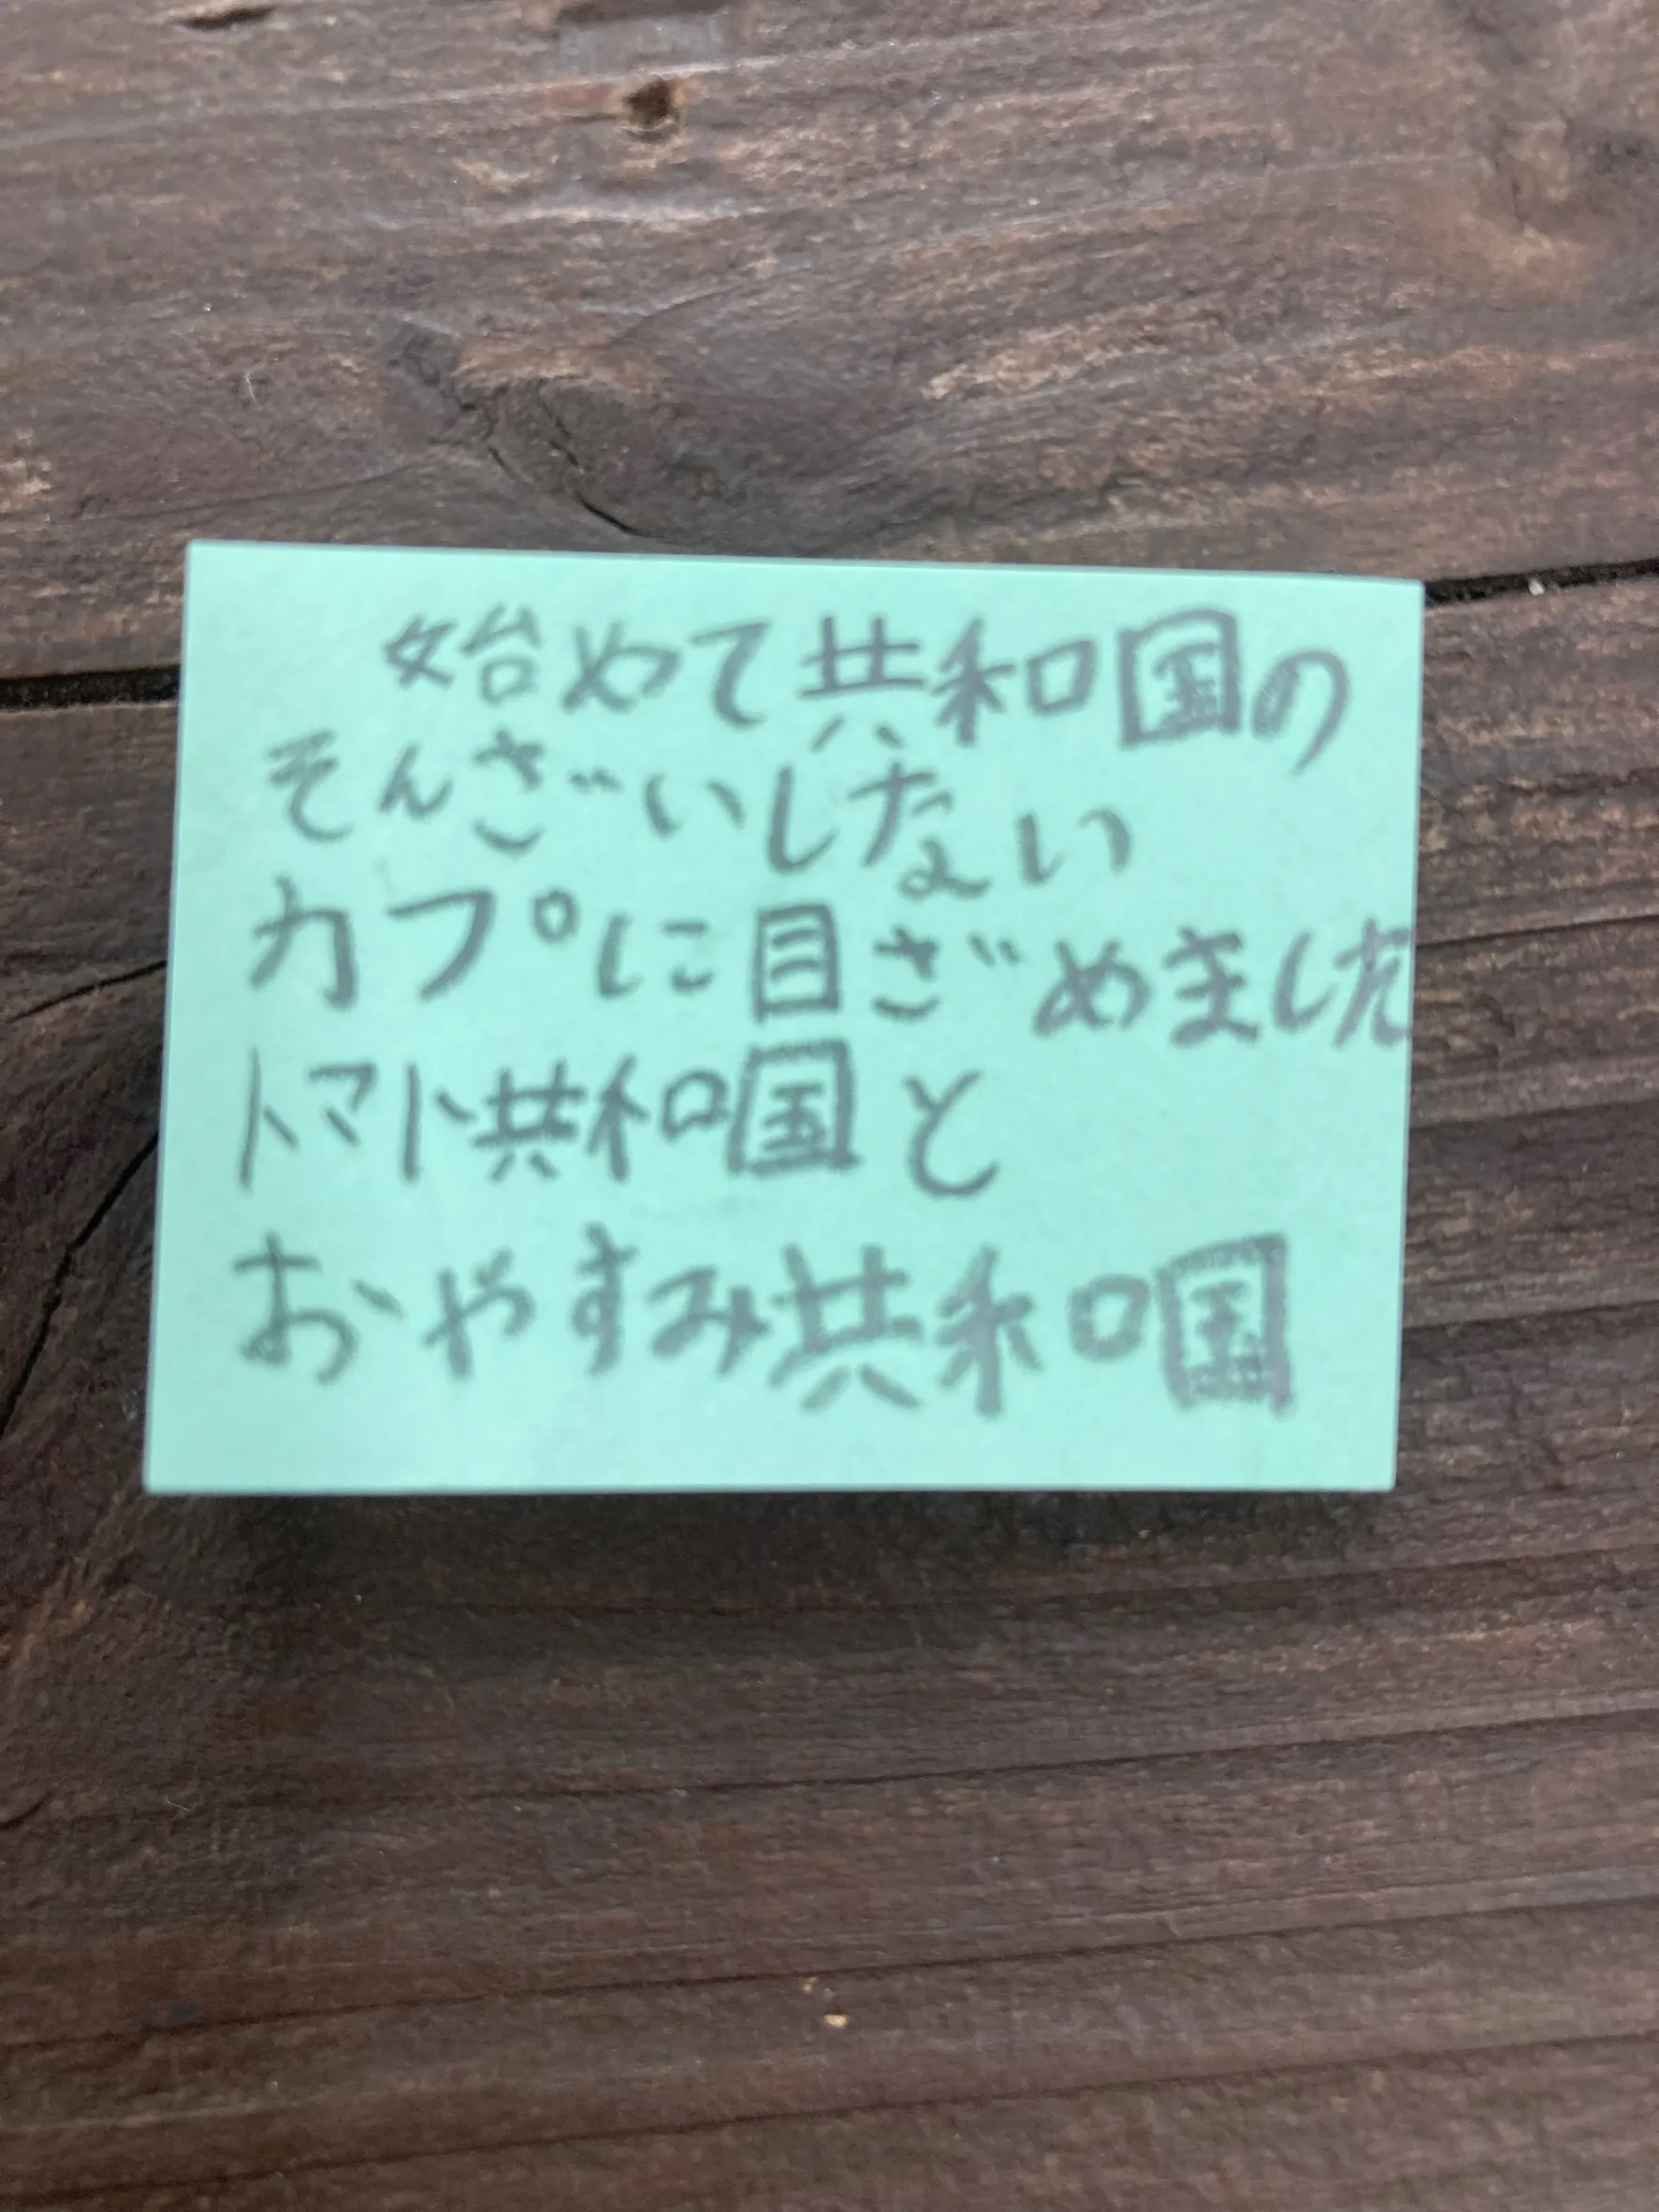 始めて共和国の
そんざいしない
カプに目ざめました
トマト共和国と
おやすみ共和国